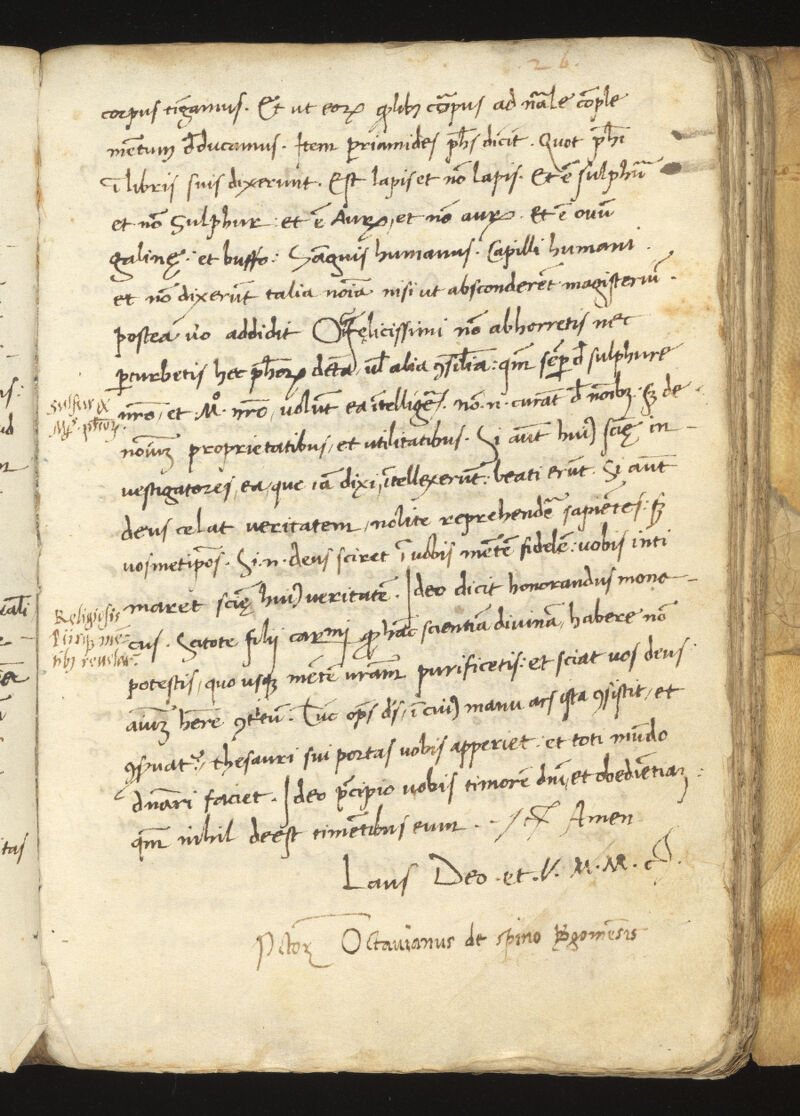 26.
corpus tīgamus. Et ut eorꝝ qlibꝫ cōꝛpus ad nāle cōple
mētum dducamus. Item periamides phs dicit. Quot phī
ī libris suis dixerunt. Est lapis et nō lapis. Et ē sulphur
et nō sulphur: et ē Aurꝫ, et nō aurꝫ. Et ē ovū
galinę: et buffo: Sāguis humanus. Capilli humani.
et nō dixerūt talia noīa nisi ut absconderēt magisteriū.
postea uo addidit O felicissimi nō abhorretis nec
perturbetis hec phorꝝ dcta, ul alia cōsilia: qm sēper d sulphure
nro, et Mº. nro, uolunt ea ītelligēs. nō. n. curāt d noībꝫ sꝫ de
noīuꝫ proprietatibus, et utilitatibus. Si aūt huiꝰ scię in-
vestigatores, ea, que iā dixi, ītellexerūt: beati erūt. Si aūt
deus celat veritatem, nolite reprehendē sapiētes: sꝫ
uosmetipos. Si. n. deus sciret ī uobis mētē fidelē: uobis inti
maret scię huiꝰ veritatē. Ideo dicit honorandus mona-
cus. Scitote filij carmi qꝫ hāc scientiā divinā, habere nō
potestis, quo usqꝫ mētē uram purificetis: et sciat uos deus
aīuꝫ hēre cōtritū. Tūc ops ds, ī cuiꝰ manu ars ista cōsistit, et
cōseruat, thesauri sui portas uobis apperiet: et toti mūdo
dnari faciet. Ideo pcipio uobis timorē dni, et obedientiaꝫ:
qm nihil deest timētibus eum. Amen
Laus Deo. et. V. M. M.
Octauianus de spino
Sulfur et
Mꝰ. phorꝝ.
Religiosis
Piisqꝫ mē
tibꝫ reuelat.